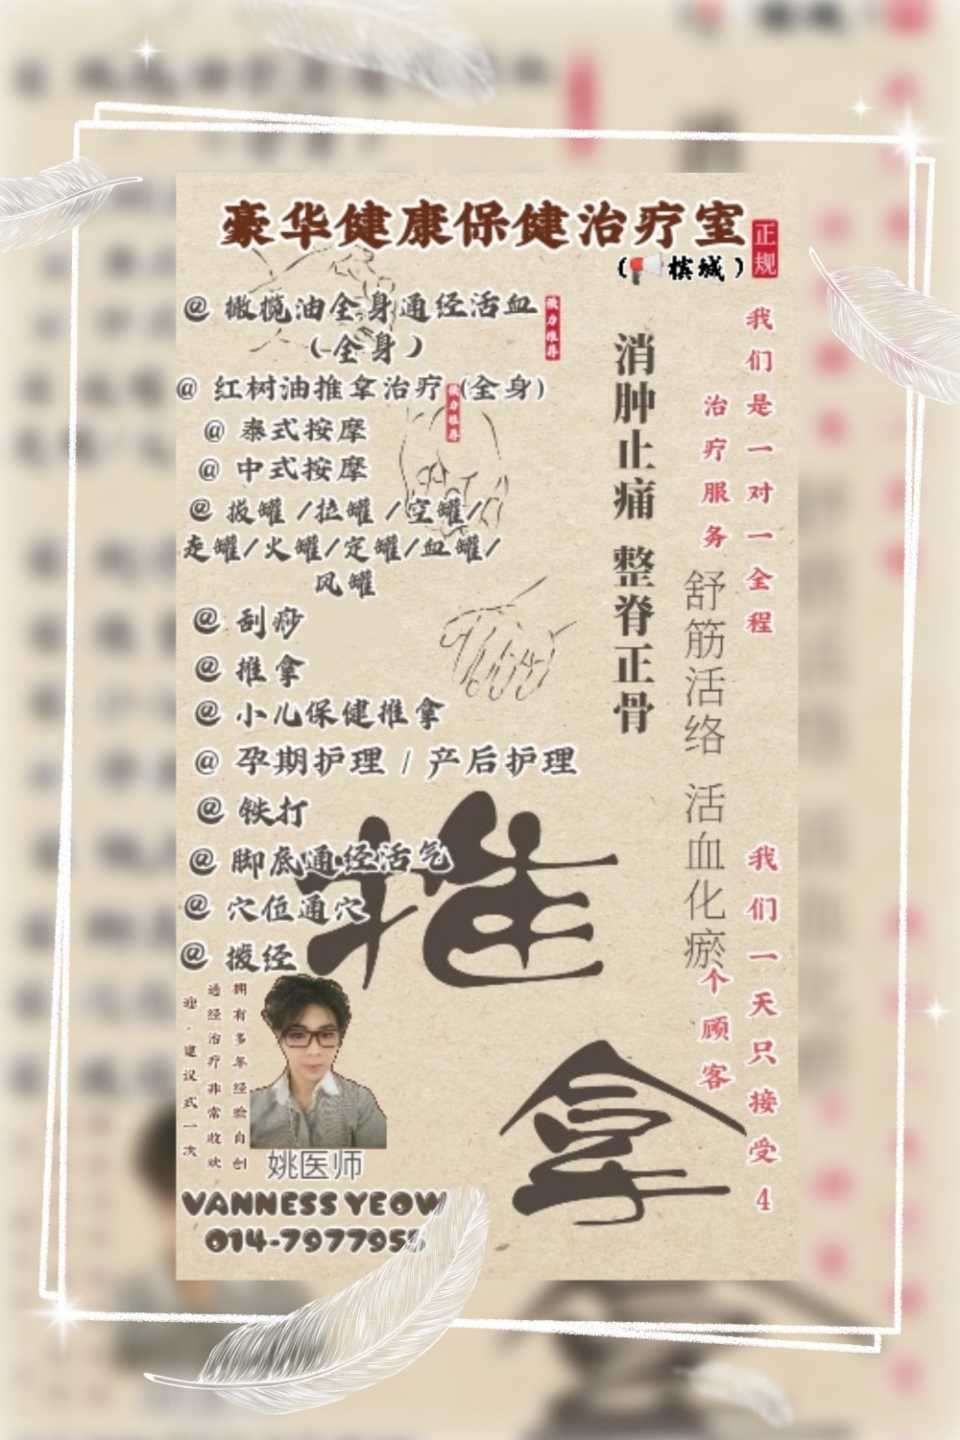 豪华健康保健治疗室
正规
(槟城)
@ 橄榄油全身通经活血
(全身)
极力推荐
@ 红树油推拿治疗 (全身)
极力推荐
@ 泰式按摩
@ 中式按摩
@ 拔罐 /拉罐 /空罐/
走罐/火罐/定罐/血罐/
风罐
@ 刮痧
@ 推拿
@ 小儿保健推拿
@ 孕期护理 / 产后护理
@ 铁打
@ 脚底通经活气
@ 穴位通穴
@ 拨经
消肿止痛 整脊正骨
舒筋活络 活血化瘀
我们是一对一全程
治疗服务
我们一天只接受4
个顾客
推
拿
拥有多年经验自创
通经治疗非常收欢
迎，建议式一次
姚医师
VANNESS YEOW
014-7977955